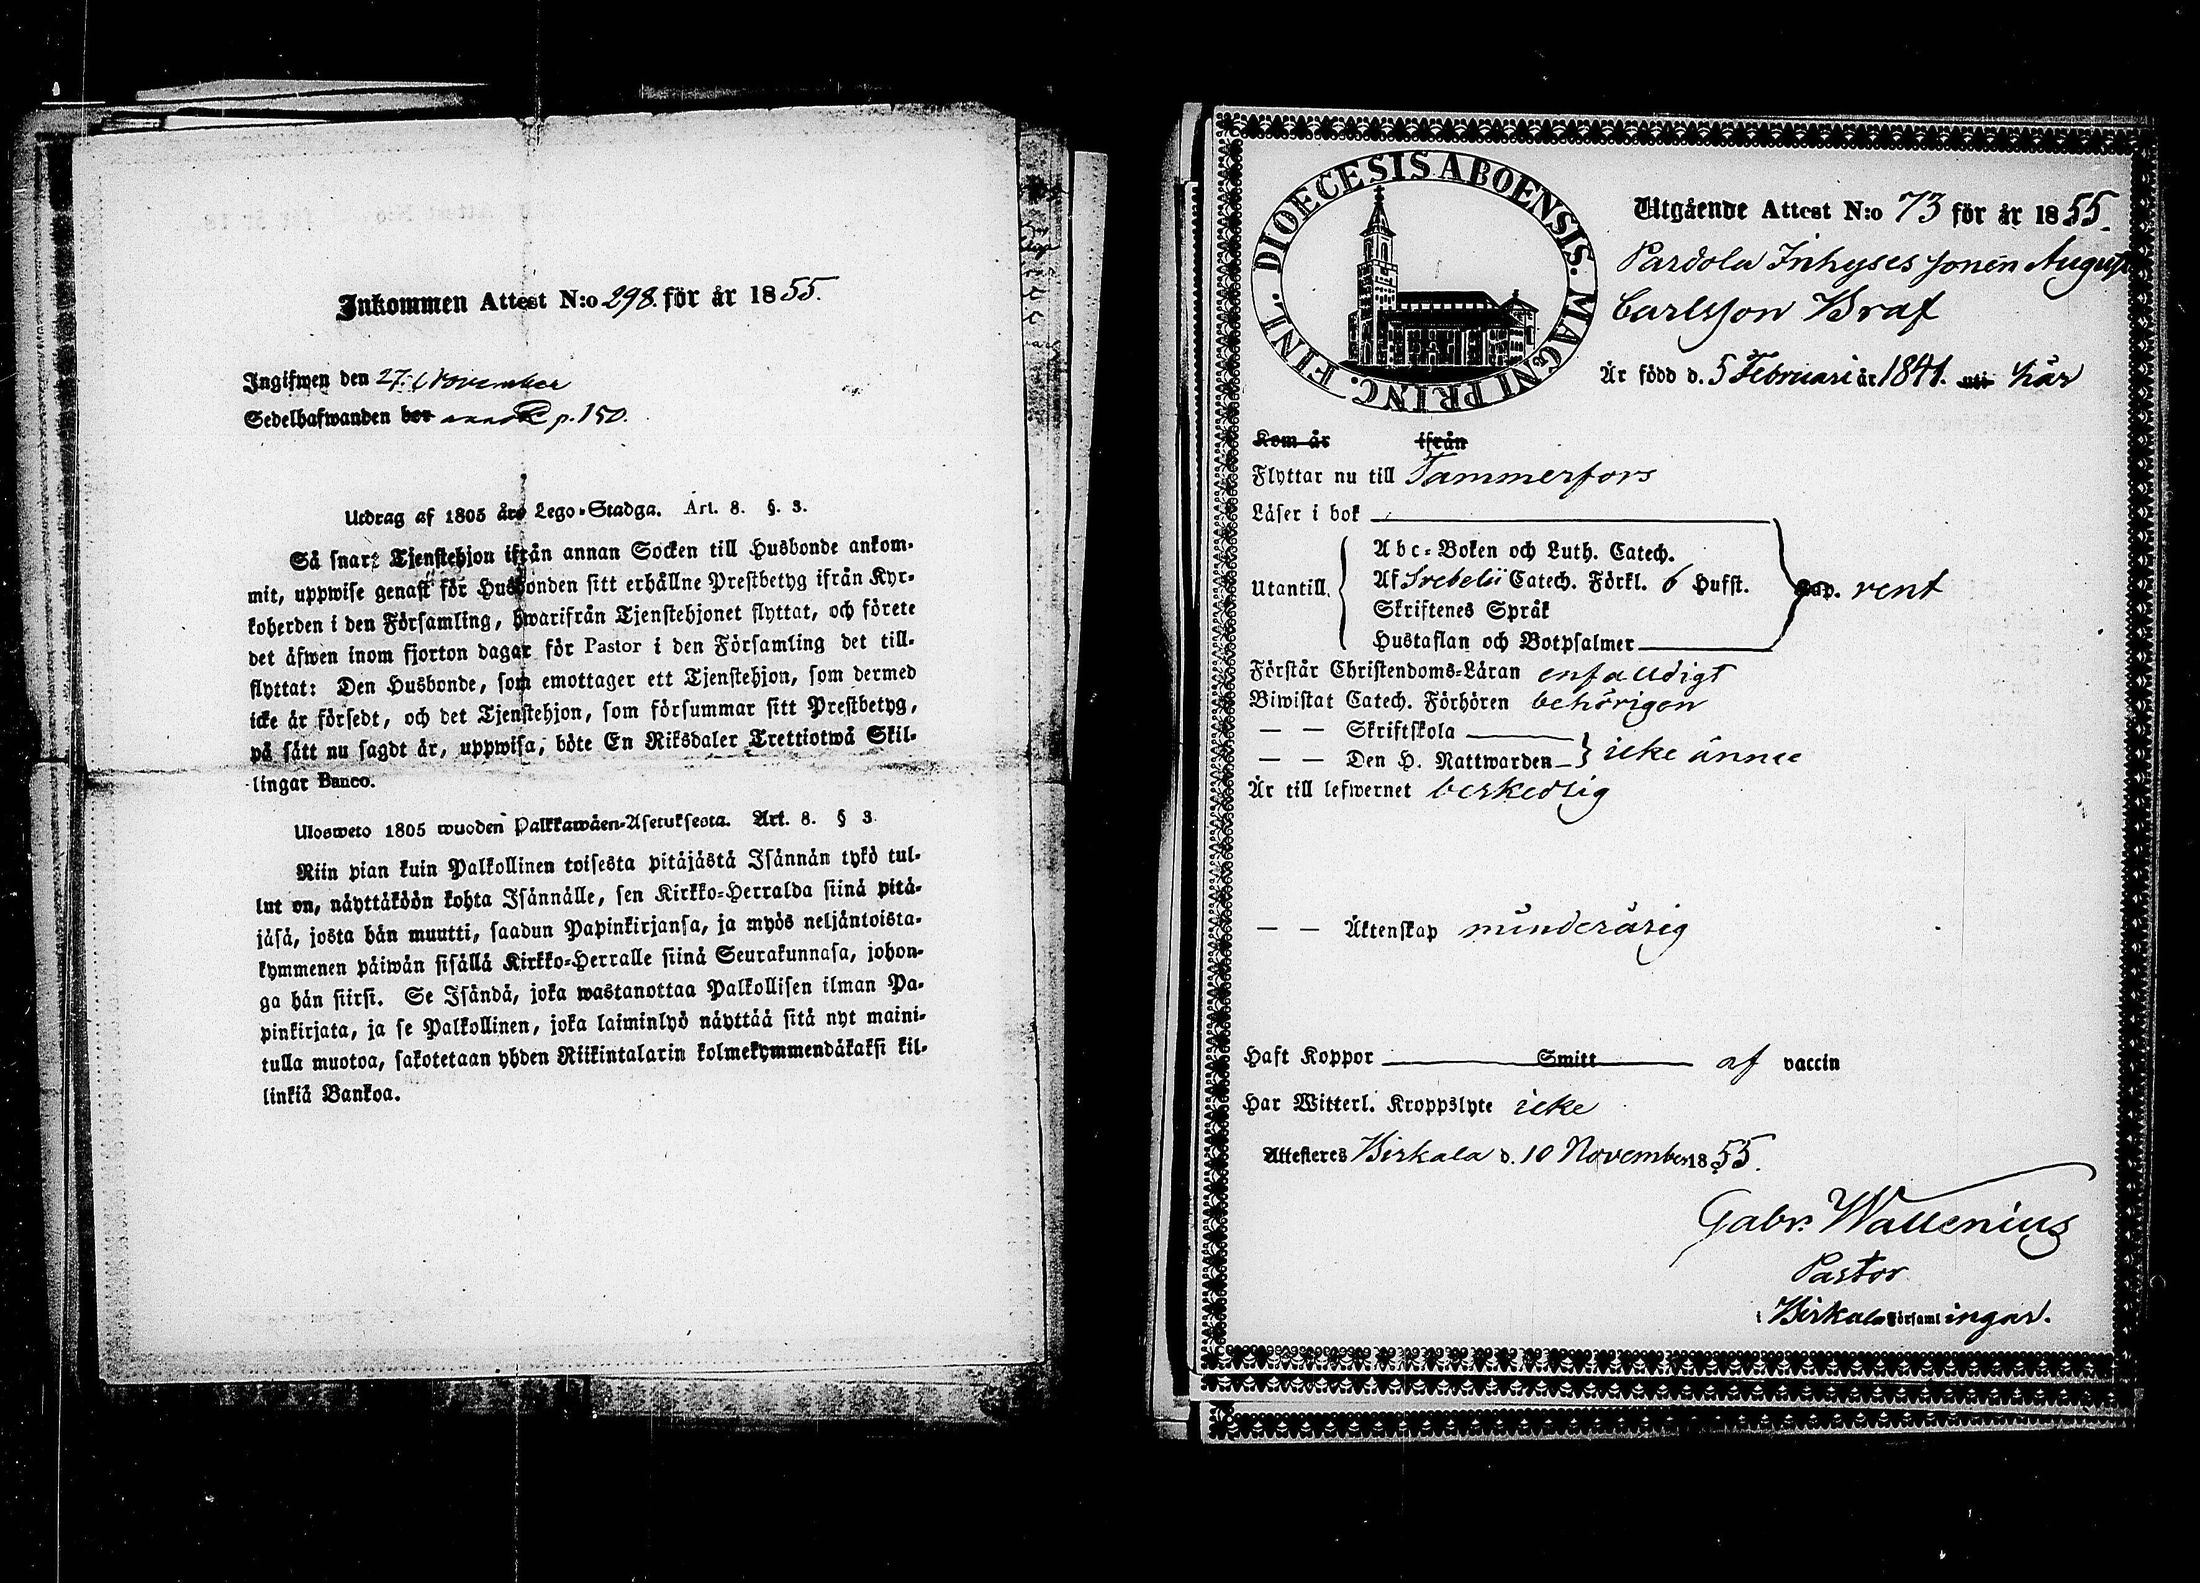 Inkommen Attest N:o 298. för år 1855.
Ingifwen den 27. November
Sedelhafwanden bor p. 150.
Utdrag af 1805 års Lego-Stadga. Art. 8. §. 3.
Så snart Tjenstehjon ifrån annan Socken till Husbonde ankom-
mit, uppwise genast för Husbonden sitt erhållne Prestbetyg ifrån Kyr-
koherden i den Församling, hwarifrån Tjenstehjonet flyttat, och förete
det äfwen inom fjorton dagar för Pastor i den Församling det till-
flyttat: Den Husbonde, som emottager ett Tjenstehjon, som dermed
icke är försedt, och det Tjenstehjon, som försummar sitt Prestbetyg,
på sätt nu sagdt är, uppwisa, böte En Riksdaler Trettiotwå Skil-
lingar Banco.
Ulosweto 1805 wuoden Palkkawäen-Asetuksesta. Art. 8. § 3.
Niin pian kuin Palkollinen toisesta pitäjästä Isännän tykö tul-
lut on, näyttäköön kohta Isännälle, sen Kirkko-Herralda siinä pitä-
jäsä, josta hän muutti, saadun Papinkirjansa, ja myös neljäntoista-
kymmenen päiwän sisällä Kirkko-Herralle siinä Seurakunnasa, johon-
ga hän siirsi. Se Isändä, joka wastanottaa Palkollisen ilman Pa-
pinkirjata, ja se Palkollinen, joka laiminlyö näyttää sitä nyt maini-
tulla muotoa, sakotetaan yhden Riikintalarin kolmekymmendäkaksi kil-
linkiä Bankoa.
DIOECESIS ABOENSIS. MAGNI PRINC. FINL.
Utgående Attest N:o 73 för år 1855.
Pardola Inhyses sonen August
Carlsson Braf
Är född d. 5 Februari år 1841. uti här
Kom år ifrån
Flyttar nu till Tammerfors
Läser i bok
Abc-Boken och Luth. Catech.
Utantill. Af Svebelii Catech. Förkl. 6 Hufst. Cap. rent
Skriftenes Språk
Hustaflan och Botpsalmer
Förstår Christendoms-Läran enfalldigt
Biwistat Catech. Förhören behörigen
— — Skriftskola
— — Den H. Nattwarden icke ännu
Är till lefwernet beskedlig
— — Äktenskap minderårig
Haft Koppor Smitt af vaccin
Har Witterl. Kroppslyte icke
Attesteres Birkala d. 10 November 1855.
Gabr. Wallenius
Pastor
i Birkala Församlingar.